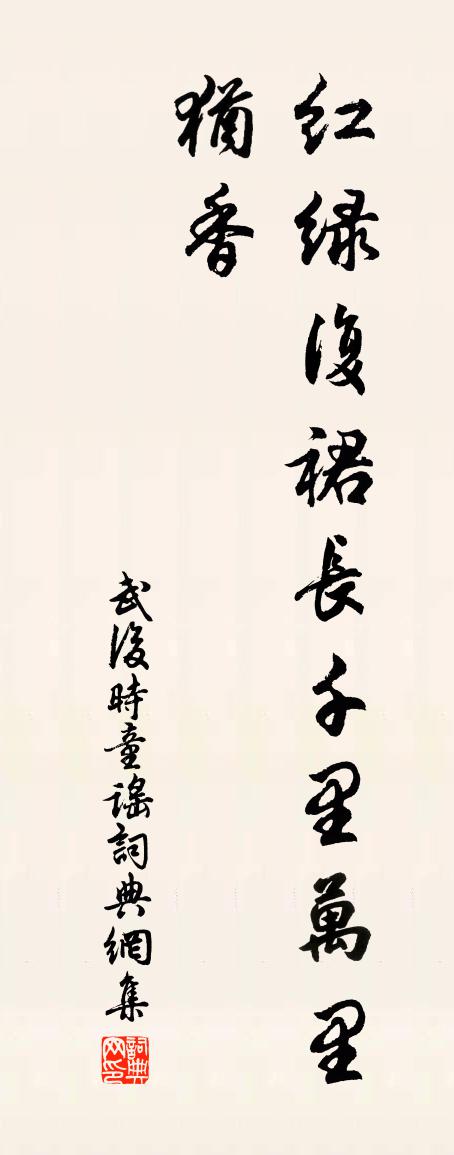 紅綠復裙長千里萬里
猶香
武後時童謠詞典網集
詞典网印